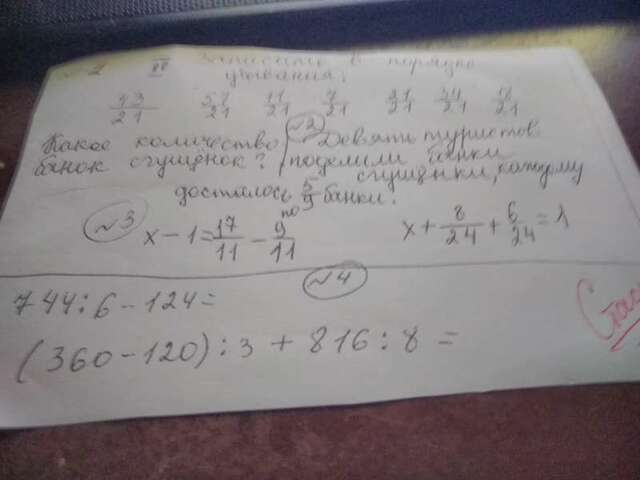 Запишите в порядке
убывания:
11/21 7/21
Какое количество банок сгущёнок?
№2 Девять туристов
поделили банки
сгущёнки, каждому
досталось по 5/9 банки.
№3
x - 1 = 17/11 - 9/11
x + 8/24 + 6/24 = 1
№4
744 : 6 - 124 =
(360 - 120) : 3 + 816 : 8 =